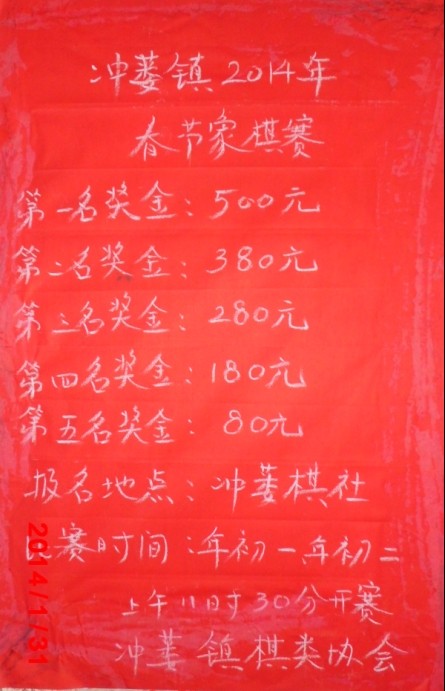 冲蒌镇2014年
春节象棋赛
第一名奖金：500元
第二名奖金：380元
第三名奖金：280元
第四名奖金：180元
第五名奖金：80元
报名地点：冲蒌棋社
比赛时间：年初一年初二
上午11时30分开赛
冲蒌镇棋类协会
2014/1/31